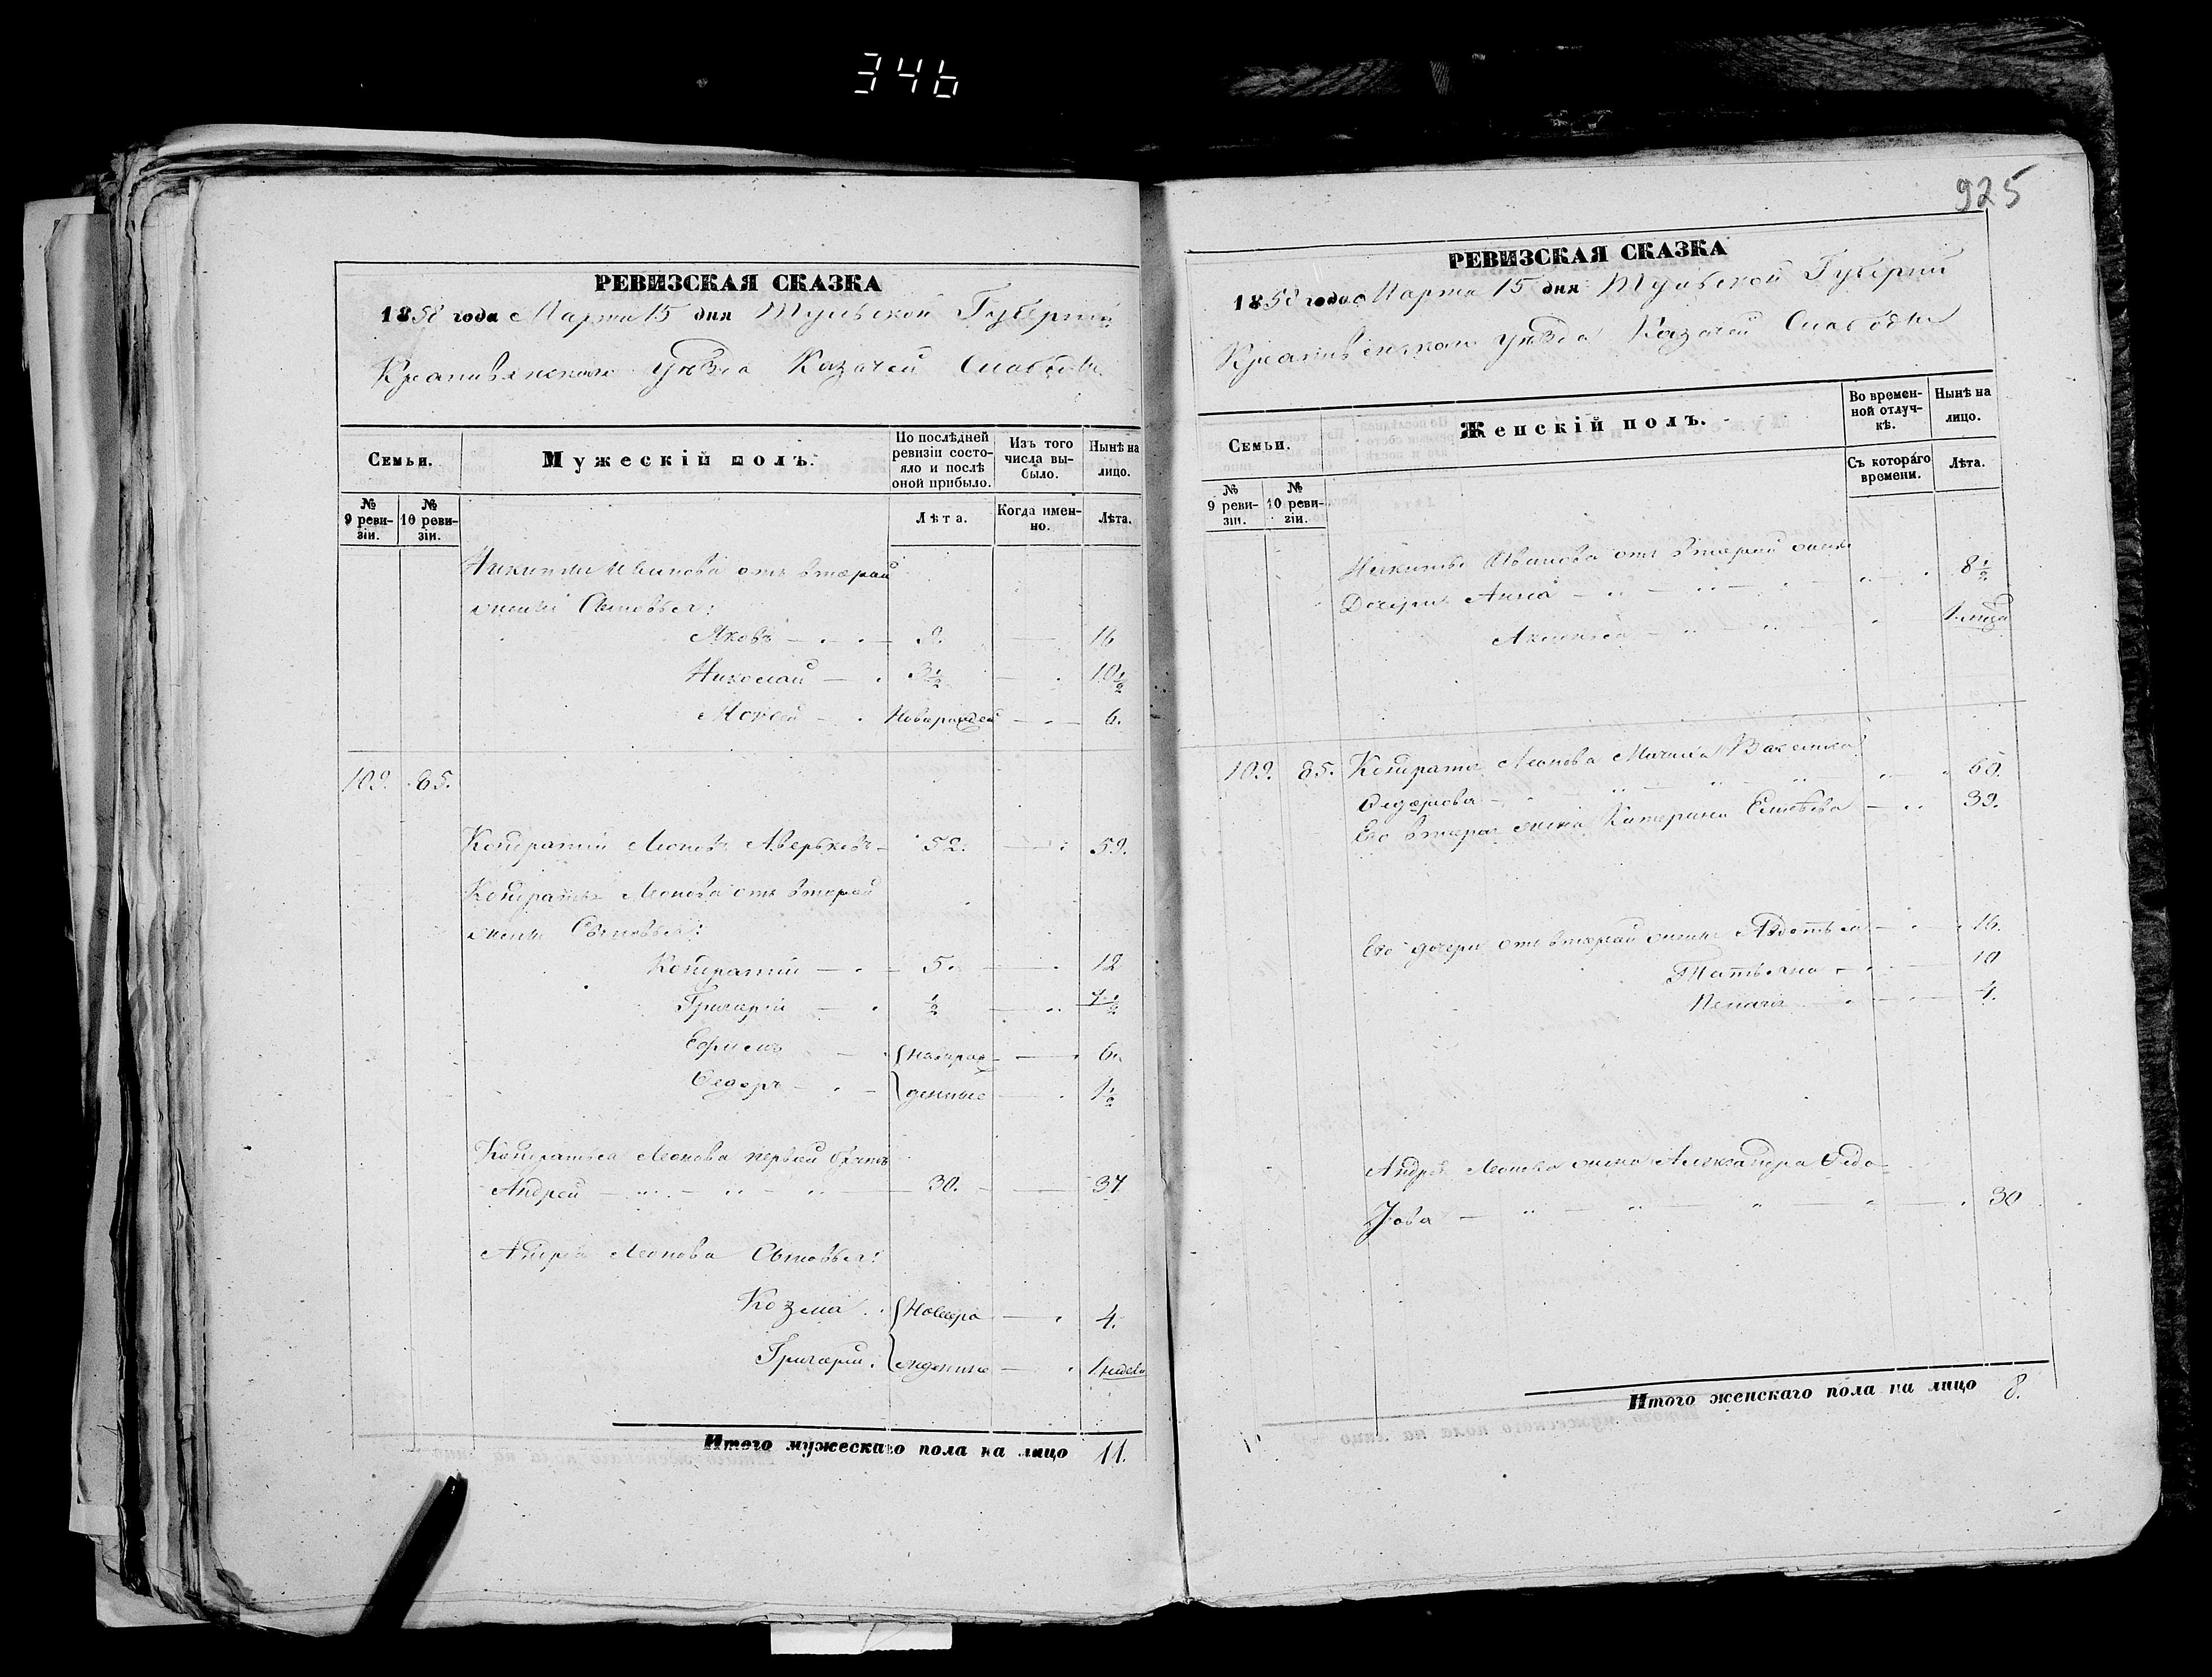 346
РЕВИЗСКАЯ СКАЗКА
1858 года Марта 15 дня Тульской Губернии
Крапивенскаго Уѣзда Казачей Слабоды
Семьи.
Мужескій полъ.
По послѣдней ревизіи состояло и послѣ оной прибыло.
Изъ того числа выбыло.
Нынѣ на лицо.
№ 9 ревизіи.
№ 10 ревизіи.
Лѣта.
Когда именно.
Лѣта.
Никиты Иванова отъ второй
жены Сыновья:
Яковъ 16
Николай 3½ 10½
Моисей Новорожден 6.
109. 85.
Кондратій Леоновъ Аверьковъ 52. 59.
Кондратья Леонова отъ второй
жены Сыновья:
Кондратій 5. 12
Григорій ½ 7½
Ефимъ новорож 6.
Федоръ денные 1½
Кондратья Леонова первой братъ
Андрей 30. 37
Андрея Леонова Сыновья:
Козма Новоро 4.
Григорій жденные 1 недели
Итого мужескаго пола на лицо 11.
925
РЕВИЗСКАЯ СКАЗКА
1858 года Марта 15 дня Тульской Губернии
Крапивенскаго Уѣзда Казачей Слабоды
Семьи.
Женскій полъ.
Во временной отлучкѣ.
Нынѣ на лицо.
№ 9 ревизіи.
№ 10 ревизіи.
Съ котораго времени.
Лѣта.
Никиты Иванова отъ второй жены
Дочери Анна 8½
Аксинья
109. 85. Кондратья Леонова Мачиха Василиса
Федорова 60.
Его вторая жена Катерина 39.
Его дочери отъ второй жены Авдотья 16.
Татьяна 10
Пелагея 4.
Андрея Леонова жена Александра Федо
това 30
Итого женскаго пола на лицо 8.